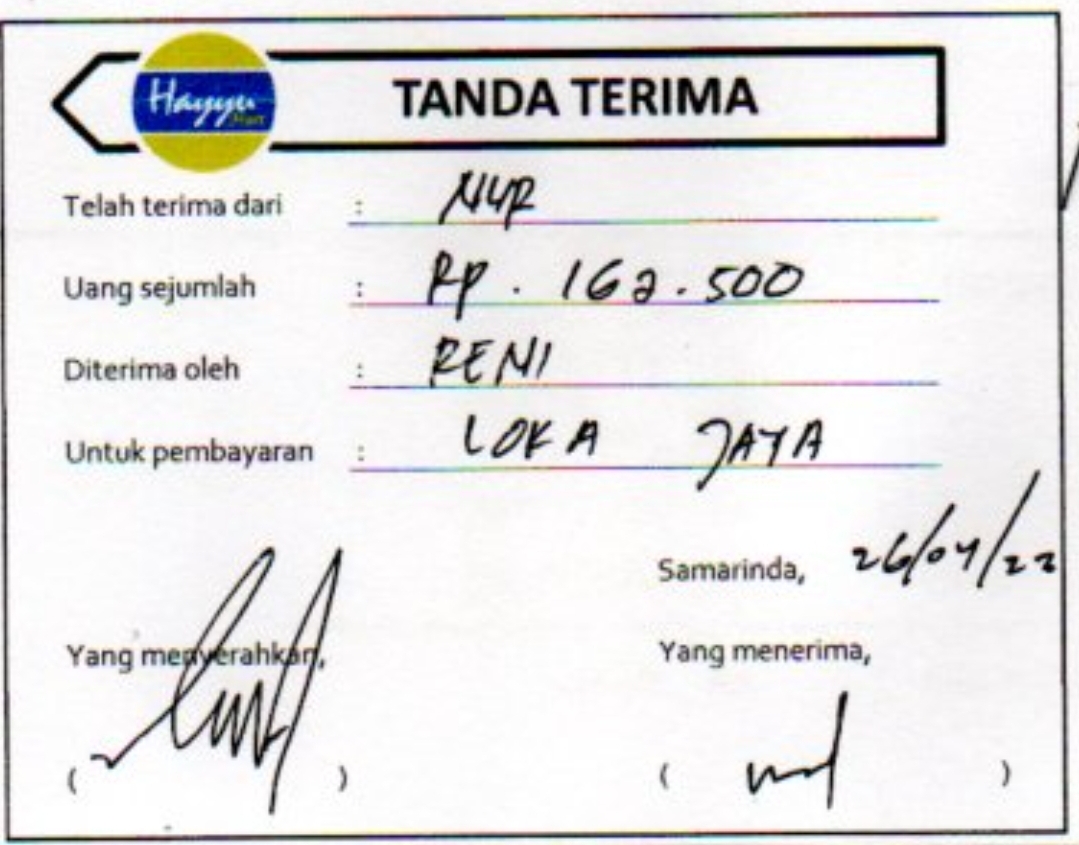 Hayyu Mart
TANDA TERIMA
Telah terima dari : NUR
Uang sejumlah : RP . 162.500
Diterima oleh : RENI
Untuk pembayaran : LOKA JAYA
Samarinda, 26/04/22
Yang menyerahkan,
Yang menerima,
( )
( )